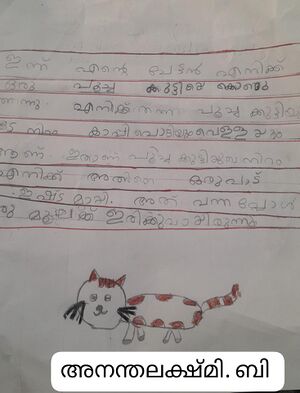 ഇന്ന് എന്റെ ചേട്ടൻ എനിക്ക്
ഒരു പൂച്ച കുട്ടിയെ കൊണ്ടു
തന്നു. എനിക്ക് തന്ന പൂച്ച കുട്ടിയു
ടെ നിറം കാപ്പിപൊട്ടിയും വെള്ളയും
ആണ്. ഇതാണ് പൂച്ച കുട്ടിയുടെ നിറം
എനിക്ക് അതിനെ ഒരുപാട്
ഇഷ്ട മായി. അത് വന്ന പ്പോൾ
മൂലയ്ക്ക് ഇരിക്കുവായിരുന്നു
അനന്തലക്ഷ്മി. ബി